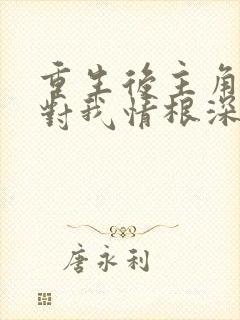 重生後主角
對我情根深
唐永利